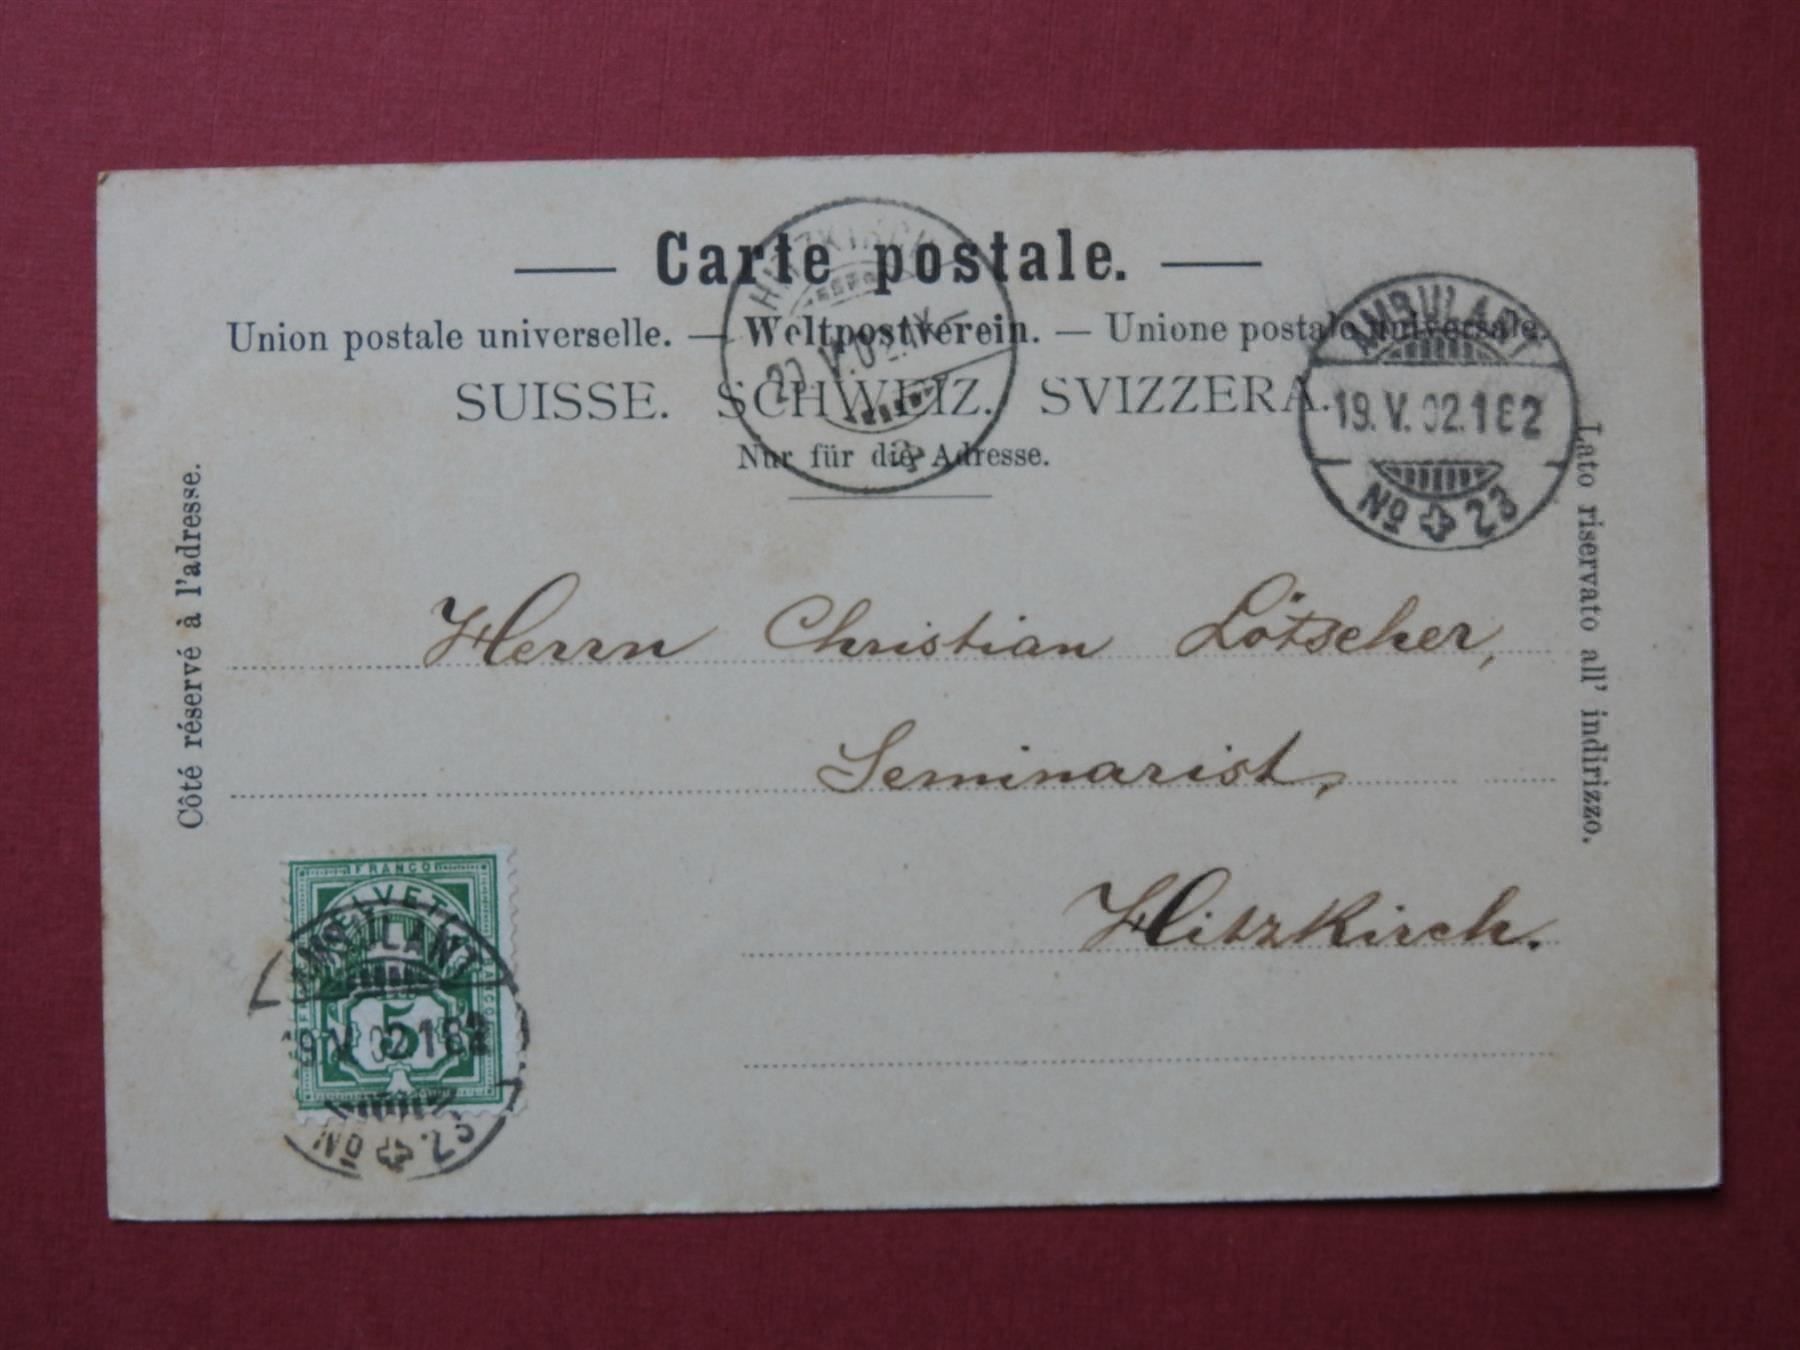 Carte postale.
Union postale universelle. — Weltpostverein. — Unione postale universale.
SUISSE. SCHWEIZ. SVIZZERA.
Nur für die Adresse.
HITZKIRCH
20. V. 02.
AMBULANT
19. V. 02.182
No 23
Côté réservé à l'adresse.
Lato riservato all' indirizzo.
Herrn Christian Lötscher,
Seminarist,
Hitzkirch.
FRANCO
HELVETIA
5
AMBULANT
19. V. 02 182
No 23